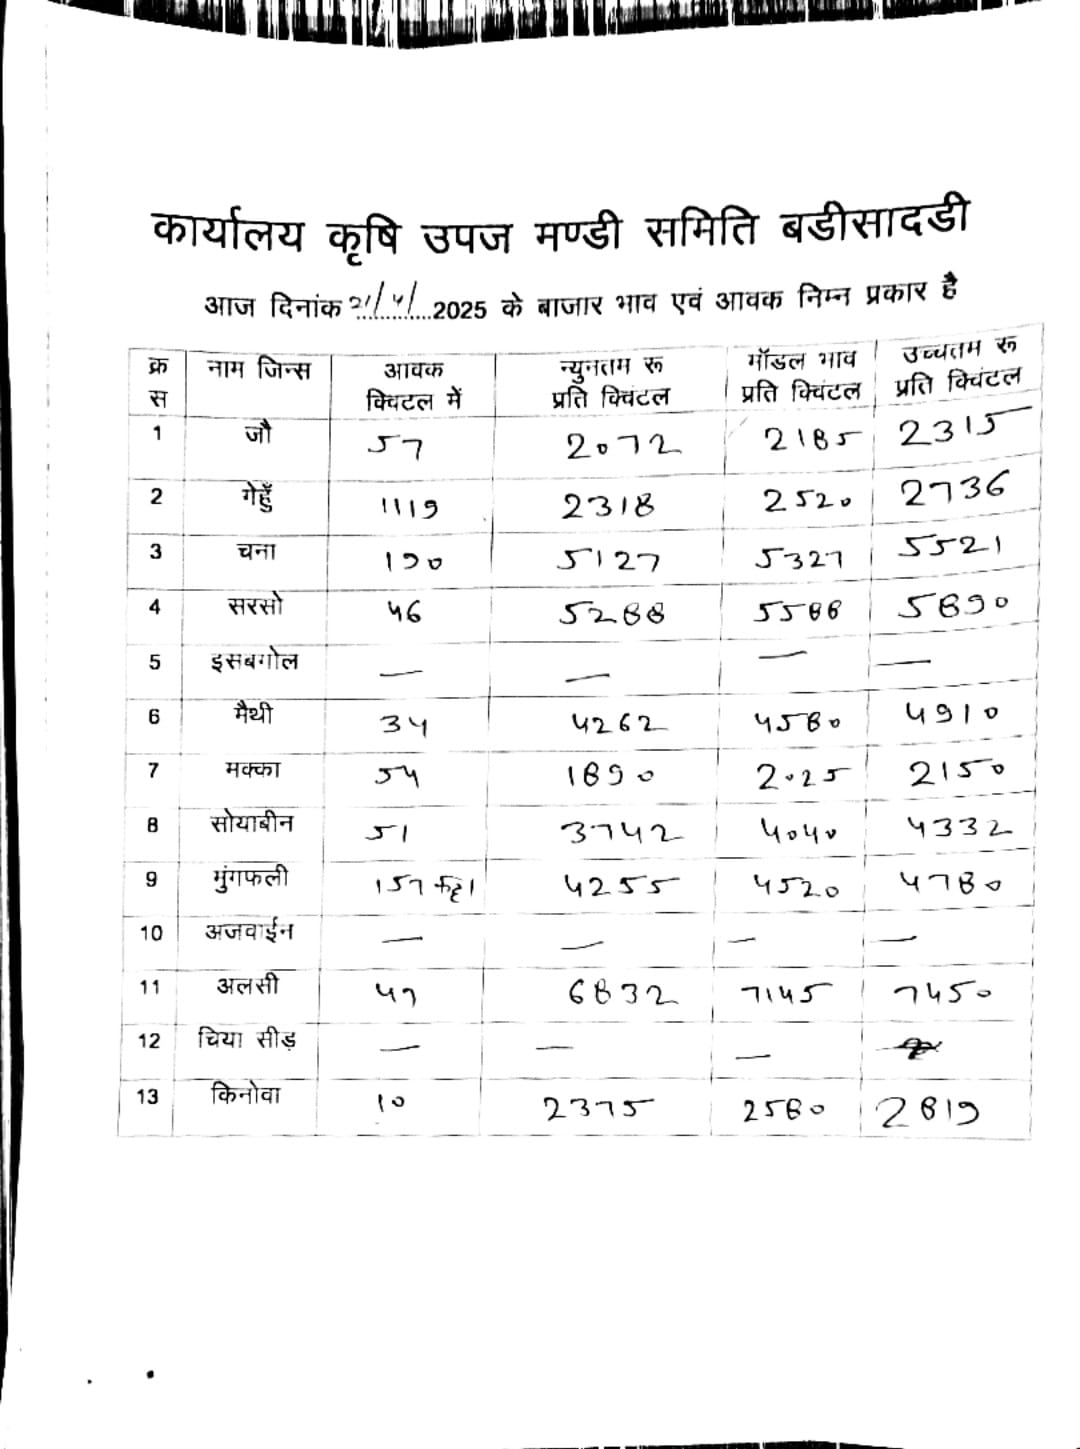 कार्यालय कृषि उपज मण्डी समिति बडीसादडी
आज दिनांक 21/4/2025 के बाजार भाव एवं आवक निम्न प्रकार है
क्र स नाम जिन्स आवक क्विटल में न्युनतम रू प्रति क्विंटल मॉडल भाव प्रति क्विंटल उच्चतम रू प्रति क्विंटल
1 जौ 57 2072 2185 2315
2 गेहुँ 1119 2318 2520 2736
3 चना 190 5127 5327 5521
4 सरसो 46 5288 5588 5890
5 इसबगोल — — — —
6 मैथी 34 4262 4580 4910
7 मक्का 54 1890 2025 2150
8 सोयाबीन 51 3742 4040 4332
9 मुंगफली 157 4255 4520 4780
10 अजवाईन — — — —
11 अलसी 47 6832 7145 7450
12 चिया सीड़ — — —
13 किनोवा 10 2375 2580 2819